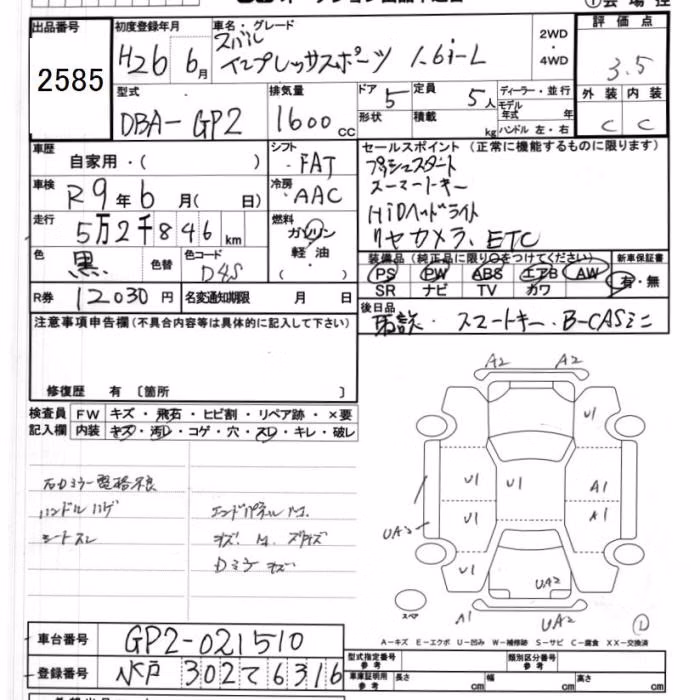 出品番号 初度登録年月 車名・グレード 評価点
2585 H26 6月 スバル インプレッサスポーツ 1.6i-L 2WD・4WD 3.5
外装 内装
C C
型式 排気量 ドア 定員 ディーラー・並行
DBA-GP2 1600 CC 5 5人 モデル年式 年
形状 積載 kg ハンドル 左・右
車歴 自家用・( ) シフト ・FAT
車検 R9年6月( 日) 冷房 ・AAC
走行 5万2千846 km 燃料 ガソリン 軽油
色 黒 色替 色コード D4S
R券 12030円 名変通知期限 月 日
セールスポイント (正常に機能するものに限ります)
プッシュスタート
スーマートキー
HiDヘッドライト
リヤカメラ、ETC
装備品(純正品に限り○をつけてください) 新車保証書
PS PW ABS エアB AW 有・無
SR ナビ TV カワ
後日品
スマートキー・B-CASミニ
注意事項申告欄(不具合内容等は具体的に記入して下さい)
修復歴 有 〔箇所 〕
検査員 FW キズ・飛石・ヒビ割・リペア跡・×要
記入欄 内装 キズ・汚レ・コゲ・穴・スレ・キレ・破レ
右カミラー電格不良
ハンドルハゲ
シートスレ
エンドパネル M.
キズ
A2 A2
U1
U1 U1 A1
U1 A1
UA2
U1 UA2
スペア A1 UA2 ①
A-キズ E-エクボ U-凹み W-補修跡 S-サビ C-腐食 XX-交換済
車台番号 GP2-021510
登録番号 302 て 6316
型式指定番号 参考 類別区分番号 参考
車庫証明用 参考 長さ cm 幅 cm 高さ cm